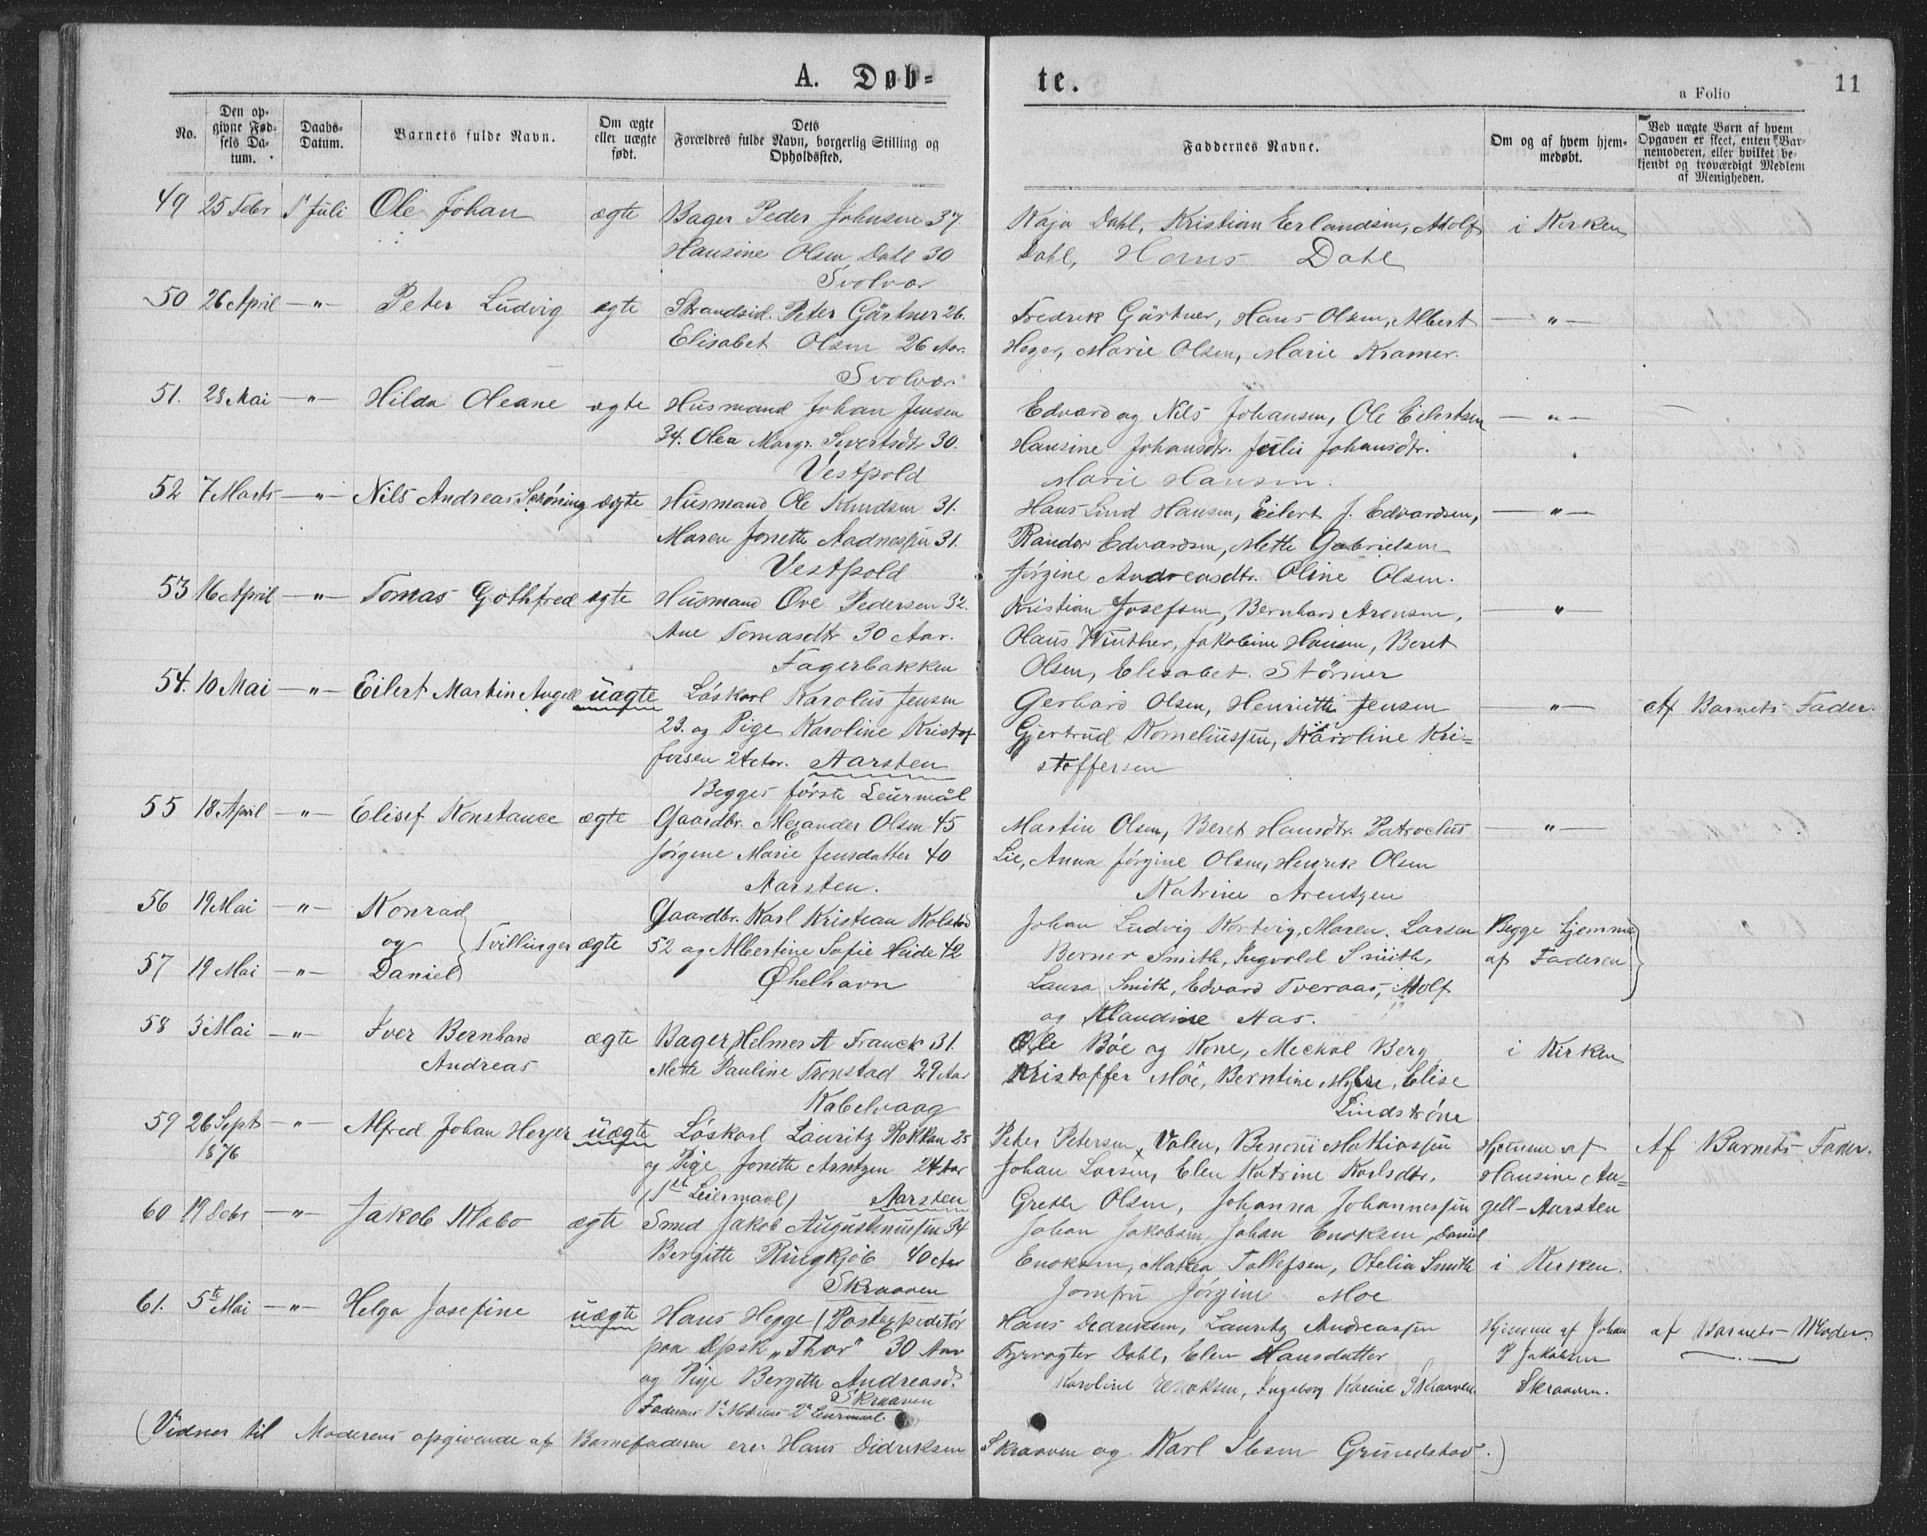 A. Døb-
te.
a Folio
11
No.
Den op-
givne Fød-
sels Da-
tum.
Daabs-
Datum.
Barnets fulde Navn.
Om ægte
eller uægte
født.
Dets
Forældres fulde Navn, borgerlig Stilling og
Opholdssted.
Faddernes Navne.
Om og af hvem hjem-
medøbt.
Ved uægte Børn af hvem
Opgaven er skeet, enten Bar-
nemoderen, eller hvilket be-
kjendt og troværdigt Medlem
af Menigheden.
49 25 Febr 1ste Juli Ole Johan ægte Bager Peder Johnsen 37. Kaja Dahl, Kristian Erlandsen, Adolf i Kirken
Hansine Olsen Dahl 30 Dahl, Hans Dahl
Svolvær
50 26 April —"— Peter Ludvig ægte Strandsid. Peter Gärtner 26. Fredrik Gärtner, Hans Olsen, Albert —"—
Elisabet Olsen 26 Aar. Heger, Marie Olsen, Marie Kramer.
Svolvær
51. 28 Mai —"— Hilda Oleane ægte Husmand Johan Jensen Edvard og Nils Johansen, Ole Eilertsen —"—
34. Olea Margr. Sivertsdtr 30. Hansine Johansdtr. Julie Johansdtr.
Vestpold Marie Hansen.
52 7 Marts —"— Nils Andreas Schöning ægte Husmand Ole Knudsen 31. Hans Lind Hansen, Eilert J. Edvardsen, —"—
Maren Jonette Aadnesen 31. Randor Edvardsen, Mette Gabrielsen
Vestpold Jörgine Andreasdtr. Oline Olsen.
53 16 April —"— Tomas Gothfred ægte Husmand Ove Pedersen 32. Kristian Josefsen, Bernhard Aronsen, —"—
Ane Tomasdtr 30 Aar. Olaus Winther, Jakobine Hansen, Beret
Fagerbakken Olsen, Elisabet Störmer
54. 10 Mai —"— Eilert Martin Angell uægte Löskarl Karolus Jensen Gerhard Olsen, Henriette Jensen —"— Af Barnets Fader.
23. og Pige Karoline Kristof Gjertrud Korneliussen, Karoline Kri=
fersen 24 Aar. Aarsten stoffersen
Begges förste Leiermål
55 18 April —"— Elisef Konstance ægte Gaardbr. Alexander Olsen 45 Martin Olsen, Beret Hansdtr. Patroclus —"—
Jörgine Marie Jensdatter 40 Lie, Anna Jörgine Olsen, Henrik Olsen
Aarsten. Katrine Arentzen
56 19 Mai —"— Konrad Gaardbr. Karl Kristian Kolstad Johan Ludvig Nortvig, Maren Larsen Begge hjemme
og Tvillinger ægte 52 og Albertine Sofie Heide 42 Berner Smith, Ingvald Smith, af Faderen
57 19 Mai —"— Daniel Øhelhavn Laura Smith, Edvard Tveraas, Adolf
og Klaudine Aas.
58 5 Mai —"— Iver Bernhard ægte Bager Helmer A Franck 31. Ole Böe og Kone, Meckal Berg i Kirken
Andreas Mette Pauline Tronstad 29 Aar Kristoffer Möe, Berntine Myhre, Elise
Kabelvaag Lindströne
59 26 Sept. —"— Alfred Johan Heyer uægte Löskarl Lauritz Rokkan 25 Peter Petersen Valen, Benoni Mathiassen Hjemme af Af Barnets Fader.
1876 og Pige Jonette Arntzen 24 Aar Johan Larsen, Elen Katrine Karlsdtr. Hansine An=
(1ste Leiermaal) Aarsten Grethe Olsen, Johanna Johannessen gell – Aarsten
60 19 Febr —"— Jakob Klæbo ægte Smed Jakob Augustinussen 34 Johan Jakobsen, Johan Enoksen, Daniel
Bergitte Ringkjöb 40 Aar Enoksen, Mathea Tollefsen, Otelia Smith i Kirken.
Skraaven Jomfru Jörgine Moe
61. 5te Mai —"— Helga Josefine uægte Hans Hegge (Postexpeditör Hans Didriksen, Lauritz Andreassen Hjemme af Johan af Barnets Moder.
paa Dpsk. „Thor" 30 Aar Fyrvogter Dahl, Elen Hansdatter P Jakobsen
og Pige Bergitte Andreasd. Karoline Enoksen, Ingeborg Karine Skraaven Skraaven.
Skraaven
Faderens 1ste Moderens 2det Leiermaal.
(Vidner til Moderens opgivende af Barnefaderen ere: Hans Didriksen Skraaven og Karl Ibsen Grundstad.)